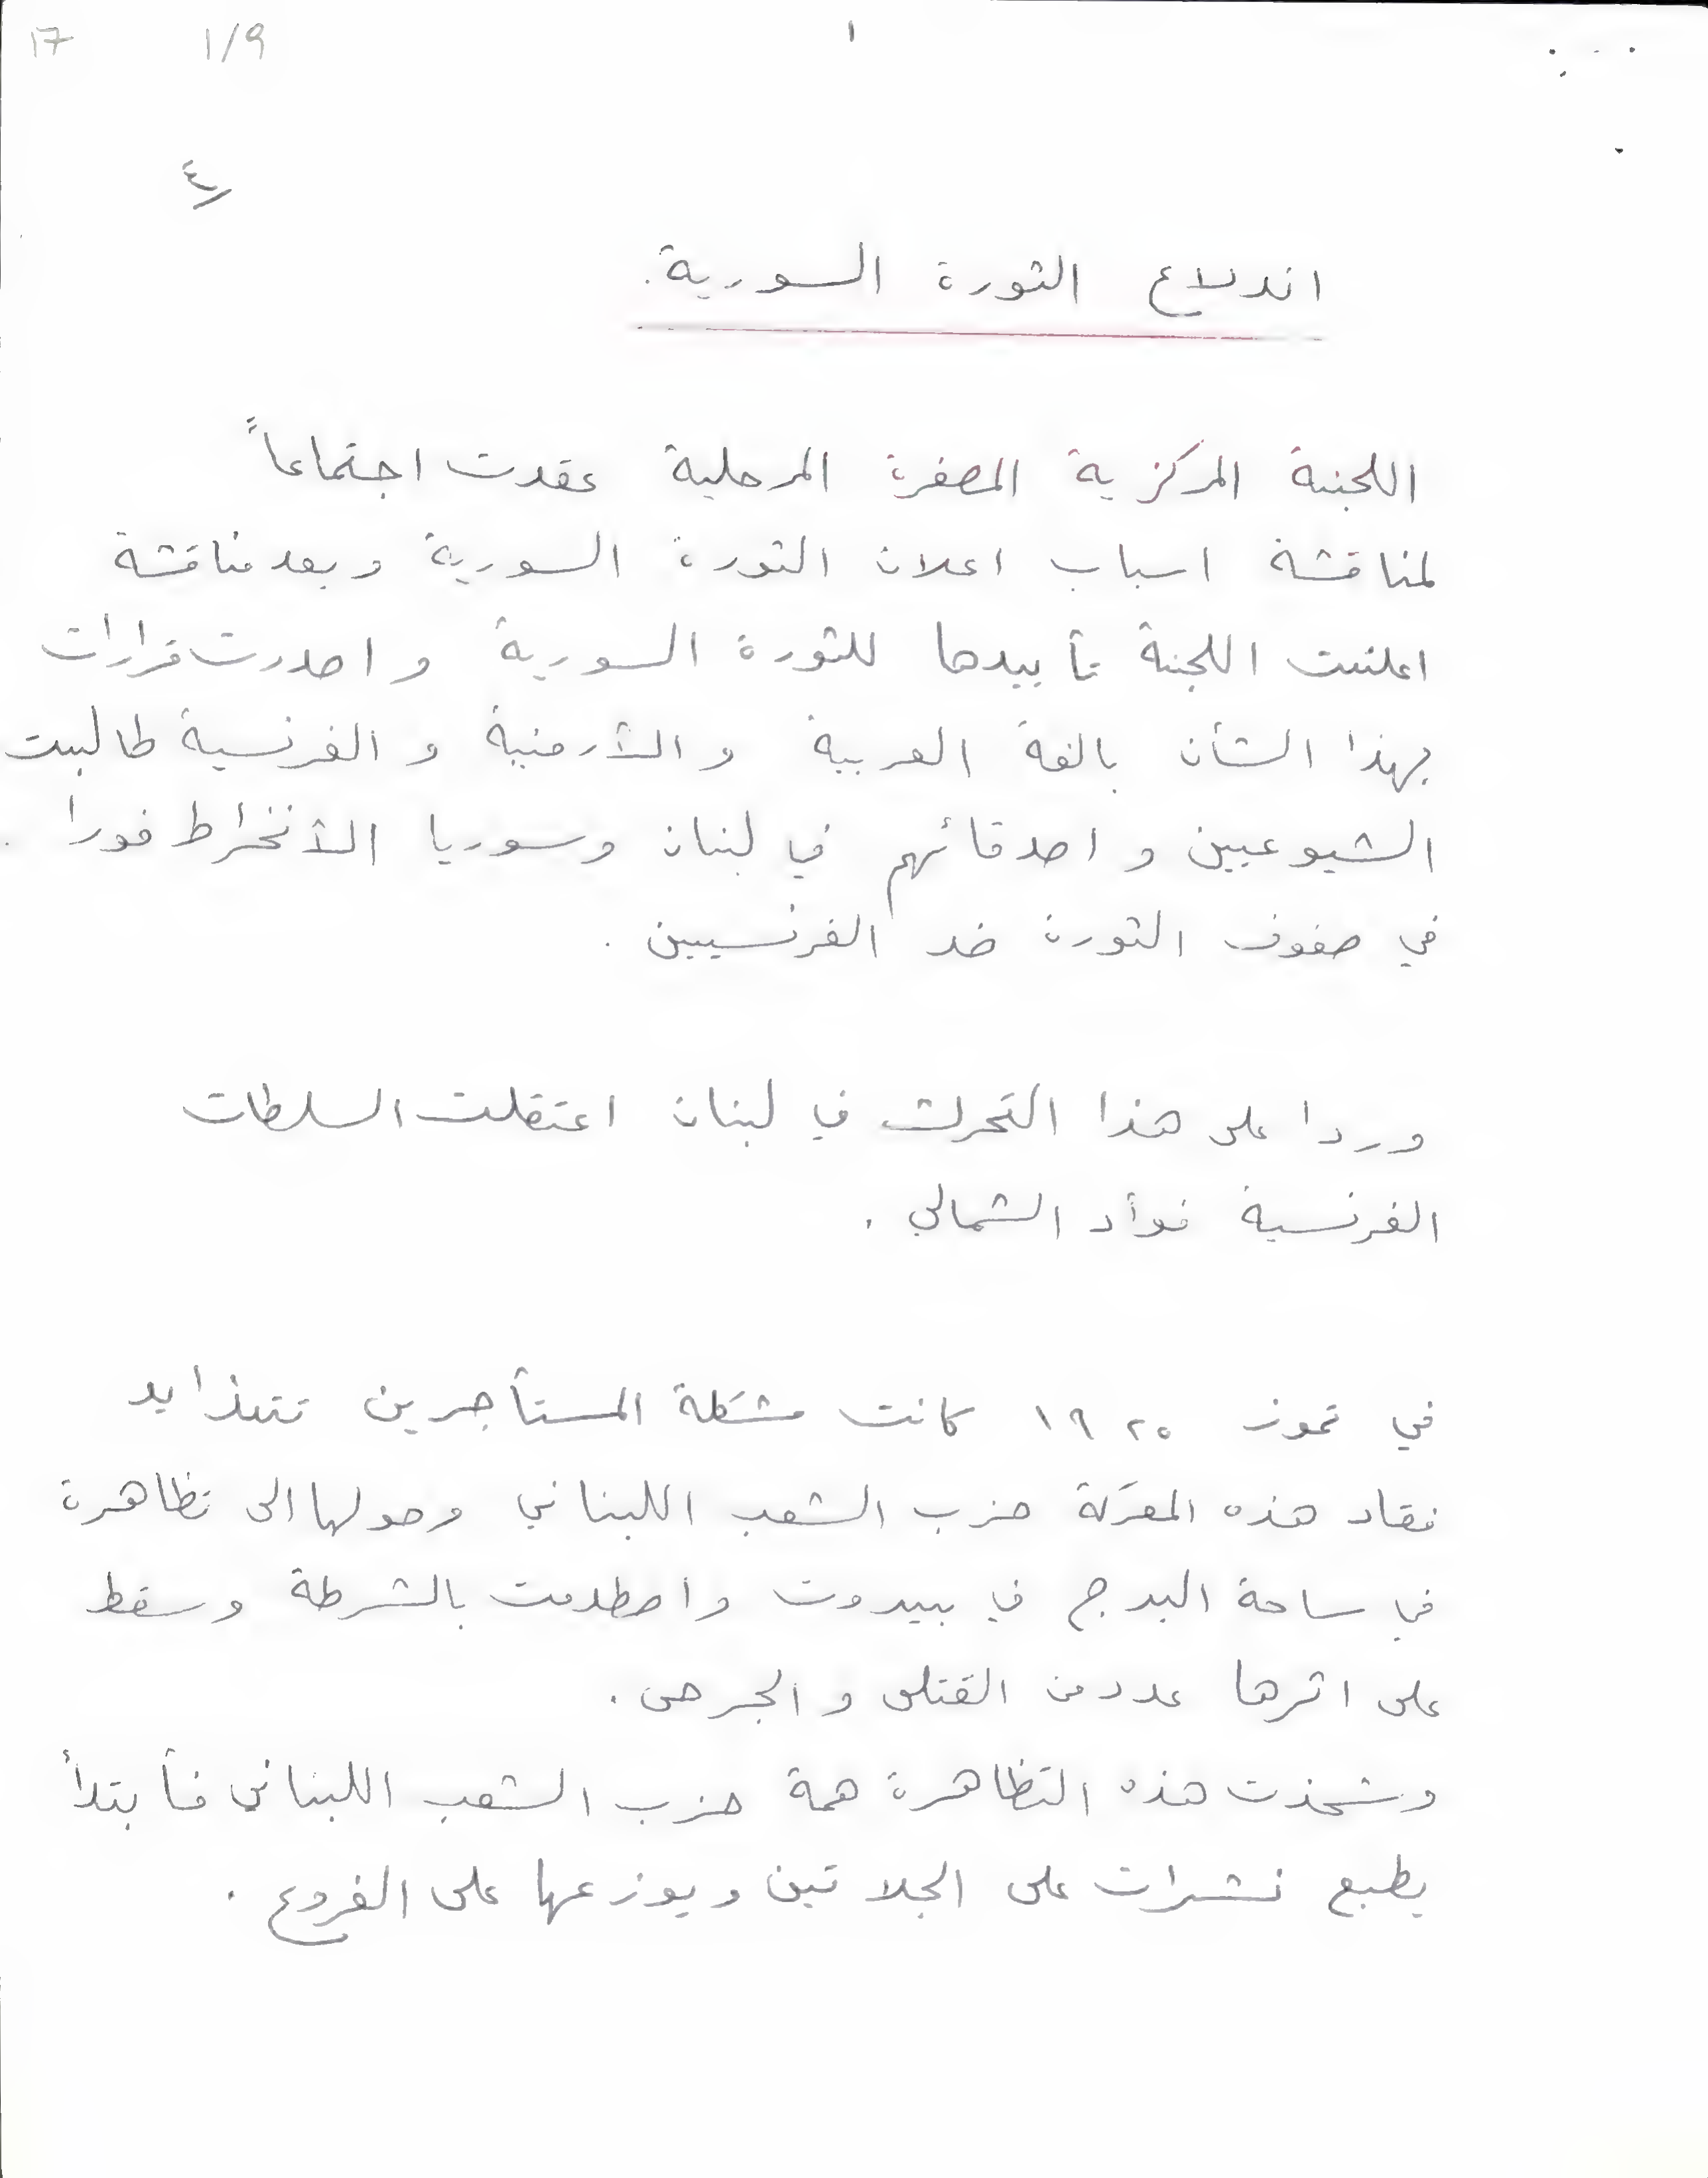 17 1/9 ١
٤
اندلاع الثورة السورية.
اللجنة المركزية المصغرة المرحلية عقدت اجتماعاً
لمناقشة اسباب اعلان الثورة السورية وبعد مناقشة
اعلنت اللجنة تأييدها للثورة السورية و اصدرت قرارات
بهذا الشأن بالغة العربية و الأرمنية و الفرنسية طالبت
الشيوعيين و اصدقائهم في لبنان وسوريا الأنخراط فورا .
في صفوف الثورة ضد الفرنسيين .
وردا على هذا التحرك في لبنان اعتقلت السلطات
الفرنسية فوأد الشمالي .
في تموز ١٩٢٥ كانت مشكلة المستأجرين تتذايد
فقاد هذه المعركة حزب الشعب اللبناني وحولها الى تظاهرة
في ساحة البرج في بيروت واصطدمت بالشرطة وسقط
على اثرها عدد من القتلى و الجرحى .
وشحذت هذه التظاهرة همة حزب الشعب اللبناني فأبتدأ
يطبع نشرات على الجلاتين ويوزعها على الفروع .